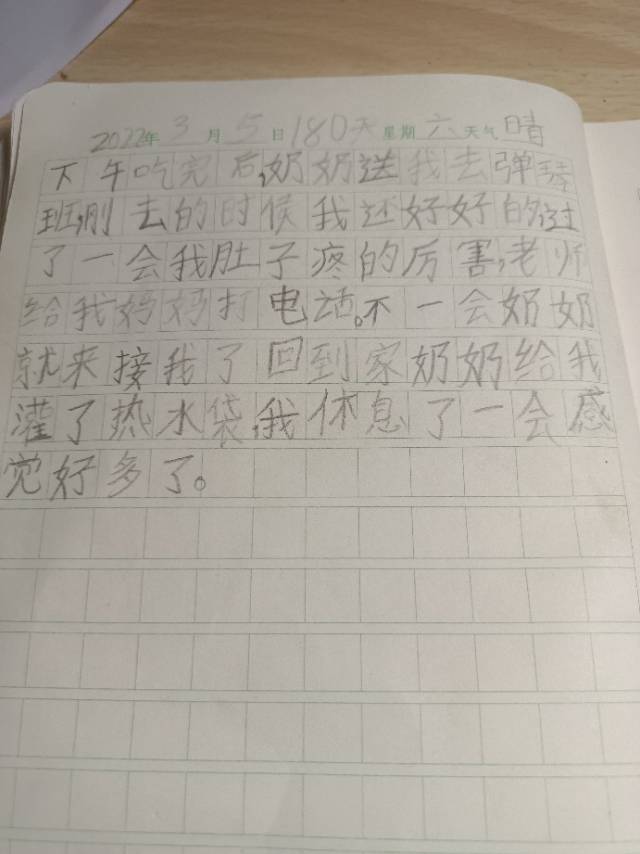 2022年3月5日180天星期六天气晴
下午吃完后,奶奶送我去弹琴
班,刚去的时候我还好好的,过
了一会我肚子疼的厉害,老师
给我妈妈打电话。不一会奶奶
就来接我了回到家奶奶给我
灌了热水袋,我休息了一会感
觉好多了。